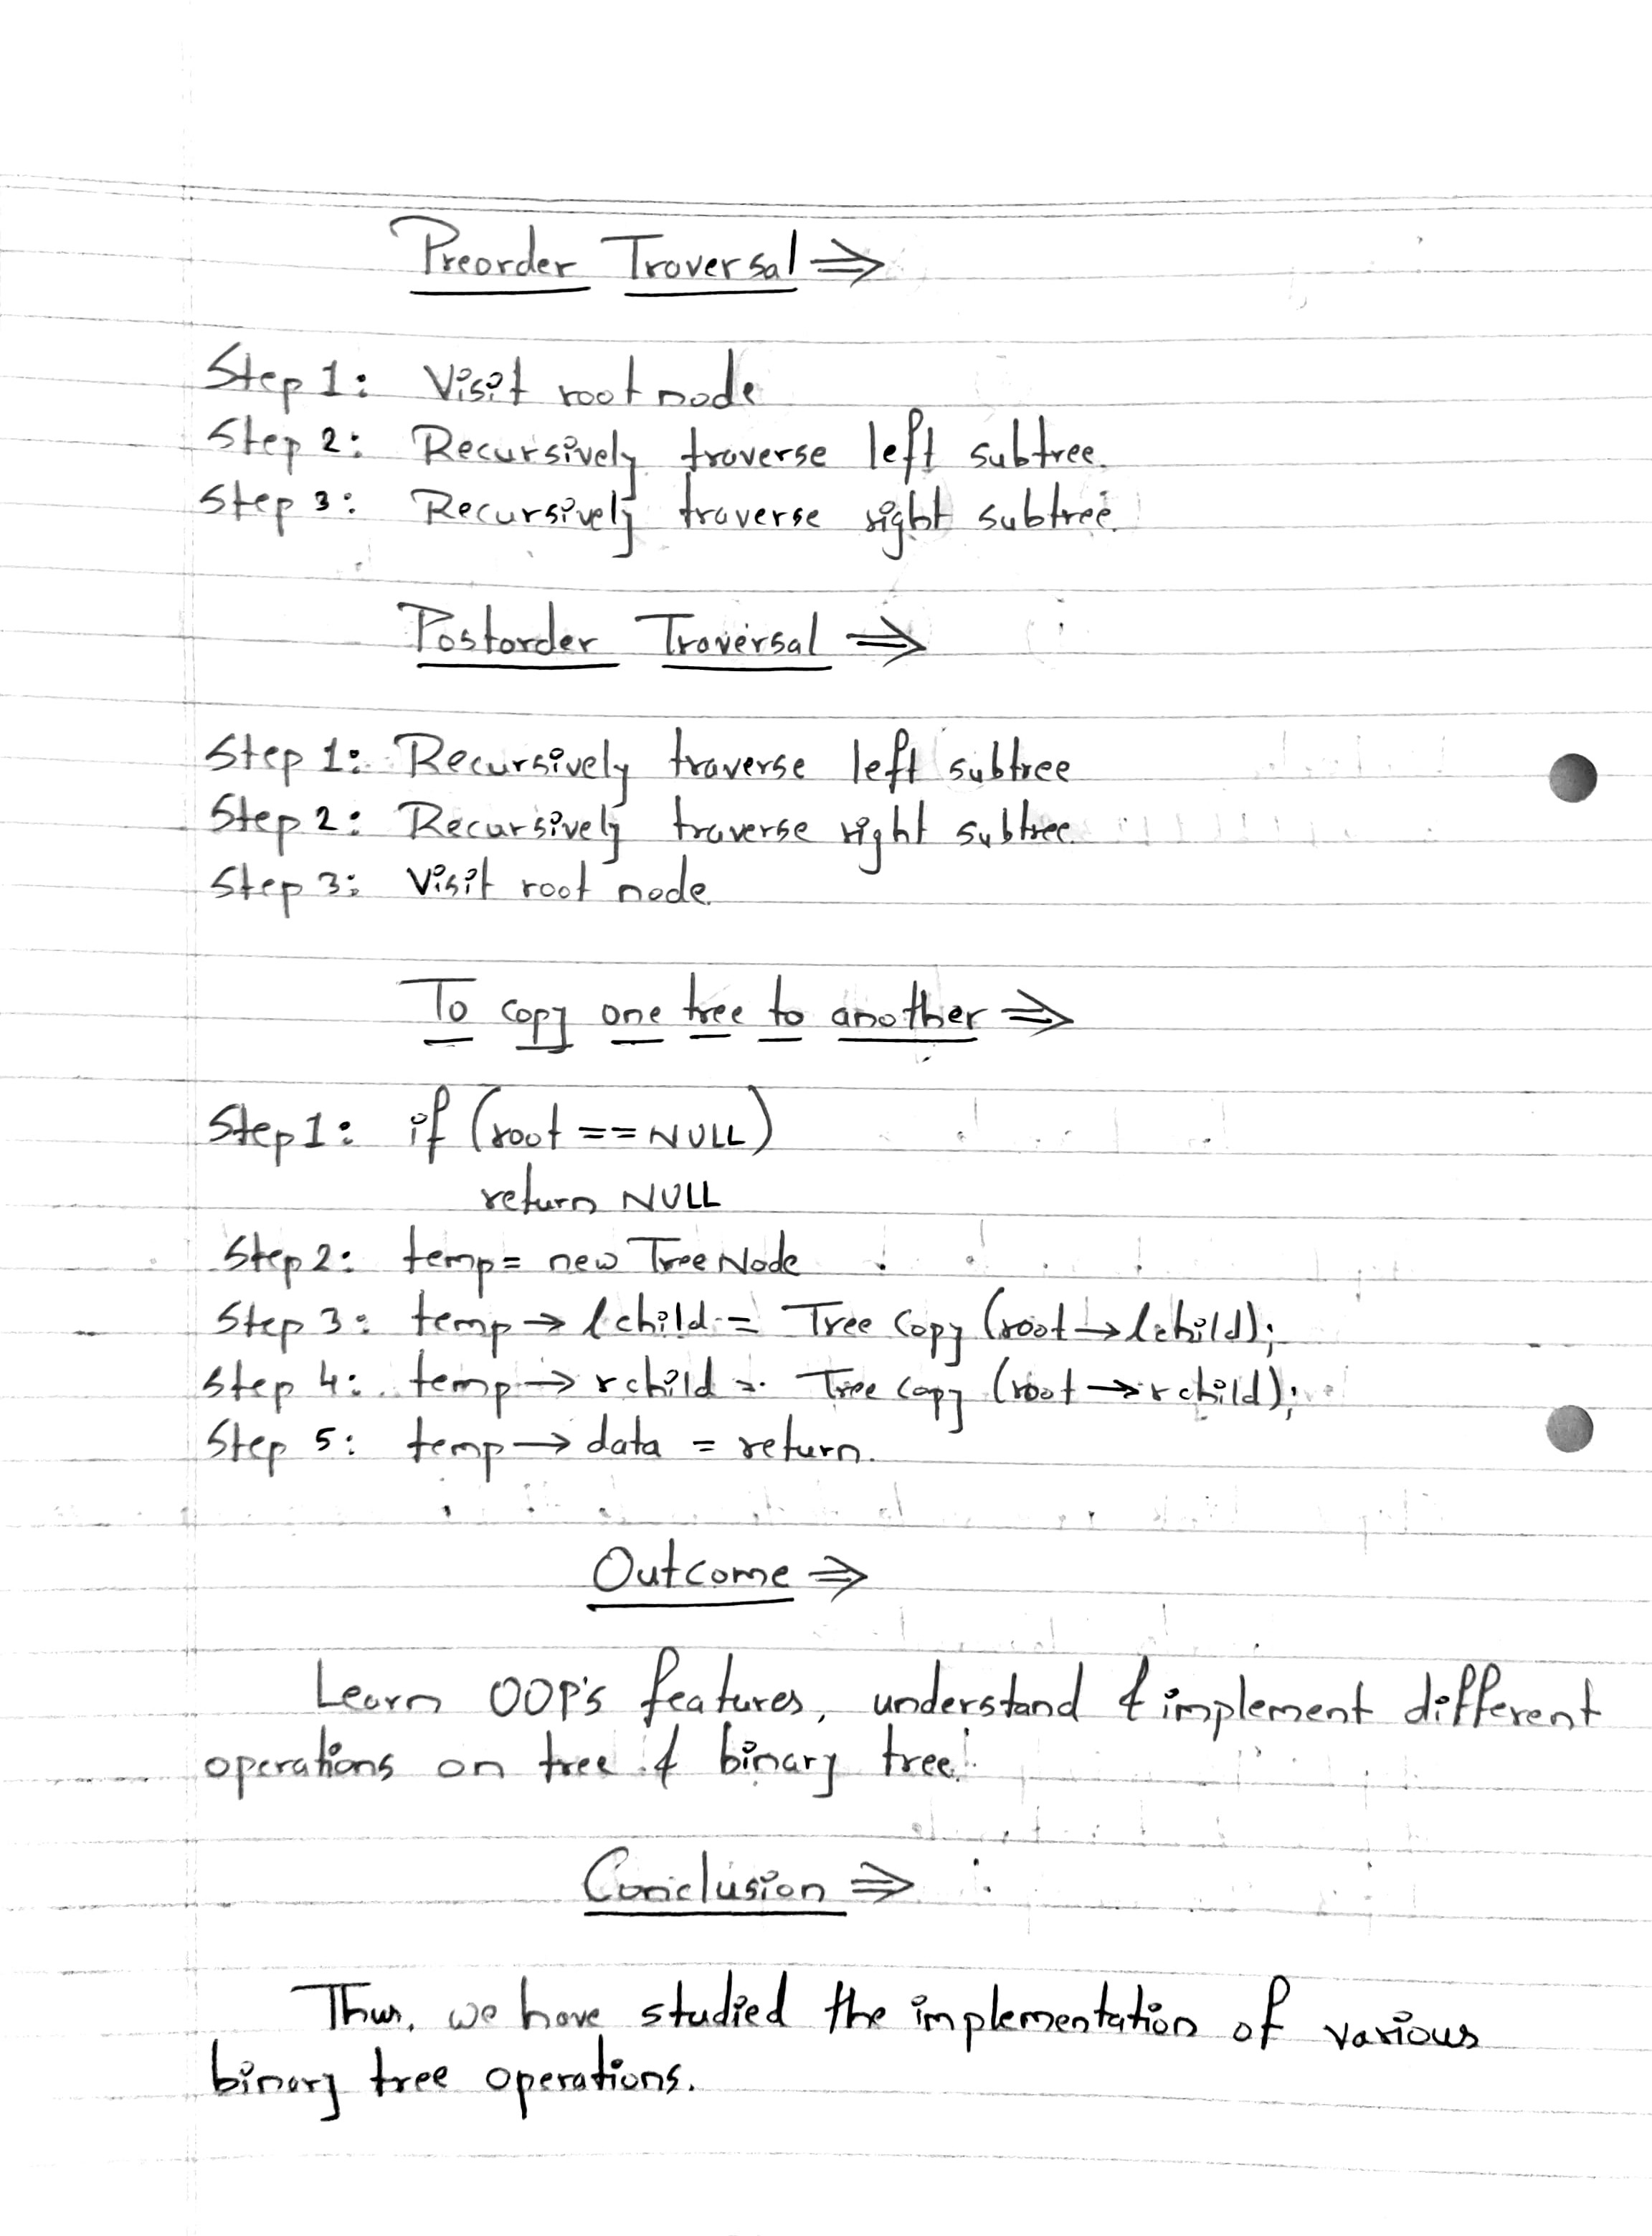 Preorder Traversal ⇒
Step 1: Visit root node
Step 2: Recursively traverse left subtree.
Step 3: Recursively traverse right subtree.
Postorder Traversal ⇒
Step 1: Recursively traverse left subtree
Step 2: Recursively traverse right subtree.
Step 3: Visit root node.
To copy one tree to another ⇒
Step 1: if (root == NULL)
return NULL
Step 2: temp = new TreeNode
Step 3: temp → lchild = Tree Copy (root → lchild);
Step 4: temp → rchild = Tree Copy (root → rchild);
Step 5: temp → data = return.
Outcome ⇒
Learn OOP's features, understand & implement different
operations on tree & binary tree.
Conclusion ⇒
Thus, we have studied the implementation of various
binary tree operations.